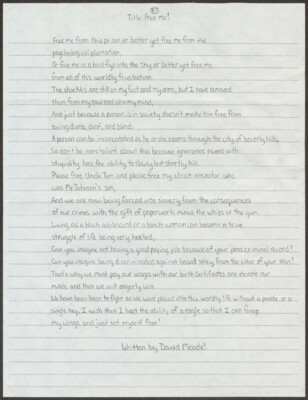 Title: Free me!
Free me from this prison or better yet free me from the
psychological plantation,
Or free me as a bird flys into the sky or better yet free me
from all of this worldly frustration.
The shackles are still on my feet and my arms, but I have removed
them from my soul and also my mind,
And just because a person is in society doesn't make him free from
being dumb, deaf, and blind.
A person can be incarcerated as he or she roams through the city of beverly hills,
So don't be nonchalant about this because ignorance mixed with
stupidity has the ability to slowly but shortly kill.
Please free Uncle Tom and please free my closet ancestor who
was Mr. Johnson's son,
And we are now being forced into slavery from the consequences
of our crimes, with the gift of paperwork minus the whips or the gun.
Living as a black adolescent or a black woman can become a true
struggle of life being very hected,
Can you imagine not having a good paying job because of your pass criminal record?
Can you imagine being discriminated against based solely from the color of your skin?
That's why we must pay our wages with our birth certificates and elevate our
minds and then we will eagerly win.
We have been born to fight as we were placed into this worldly life without a paddle or a
single hey, I wish that I had the ability of a eagle so that I can flap
my wings and just set myself free!
Written by David Meade!